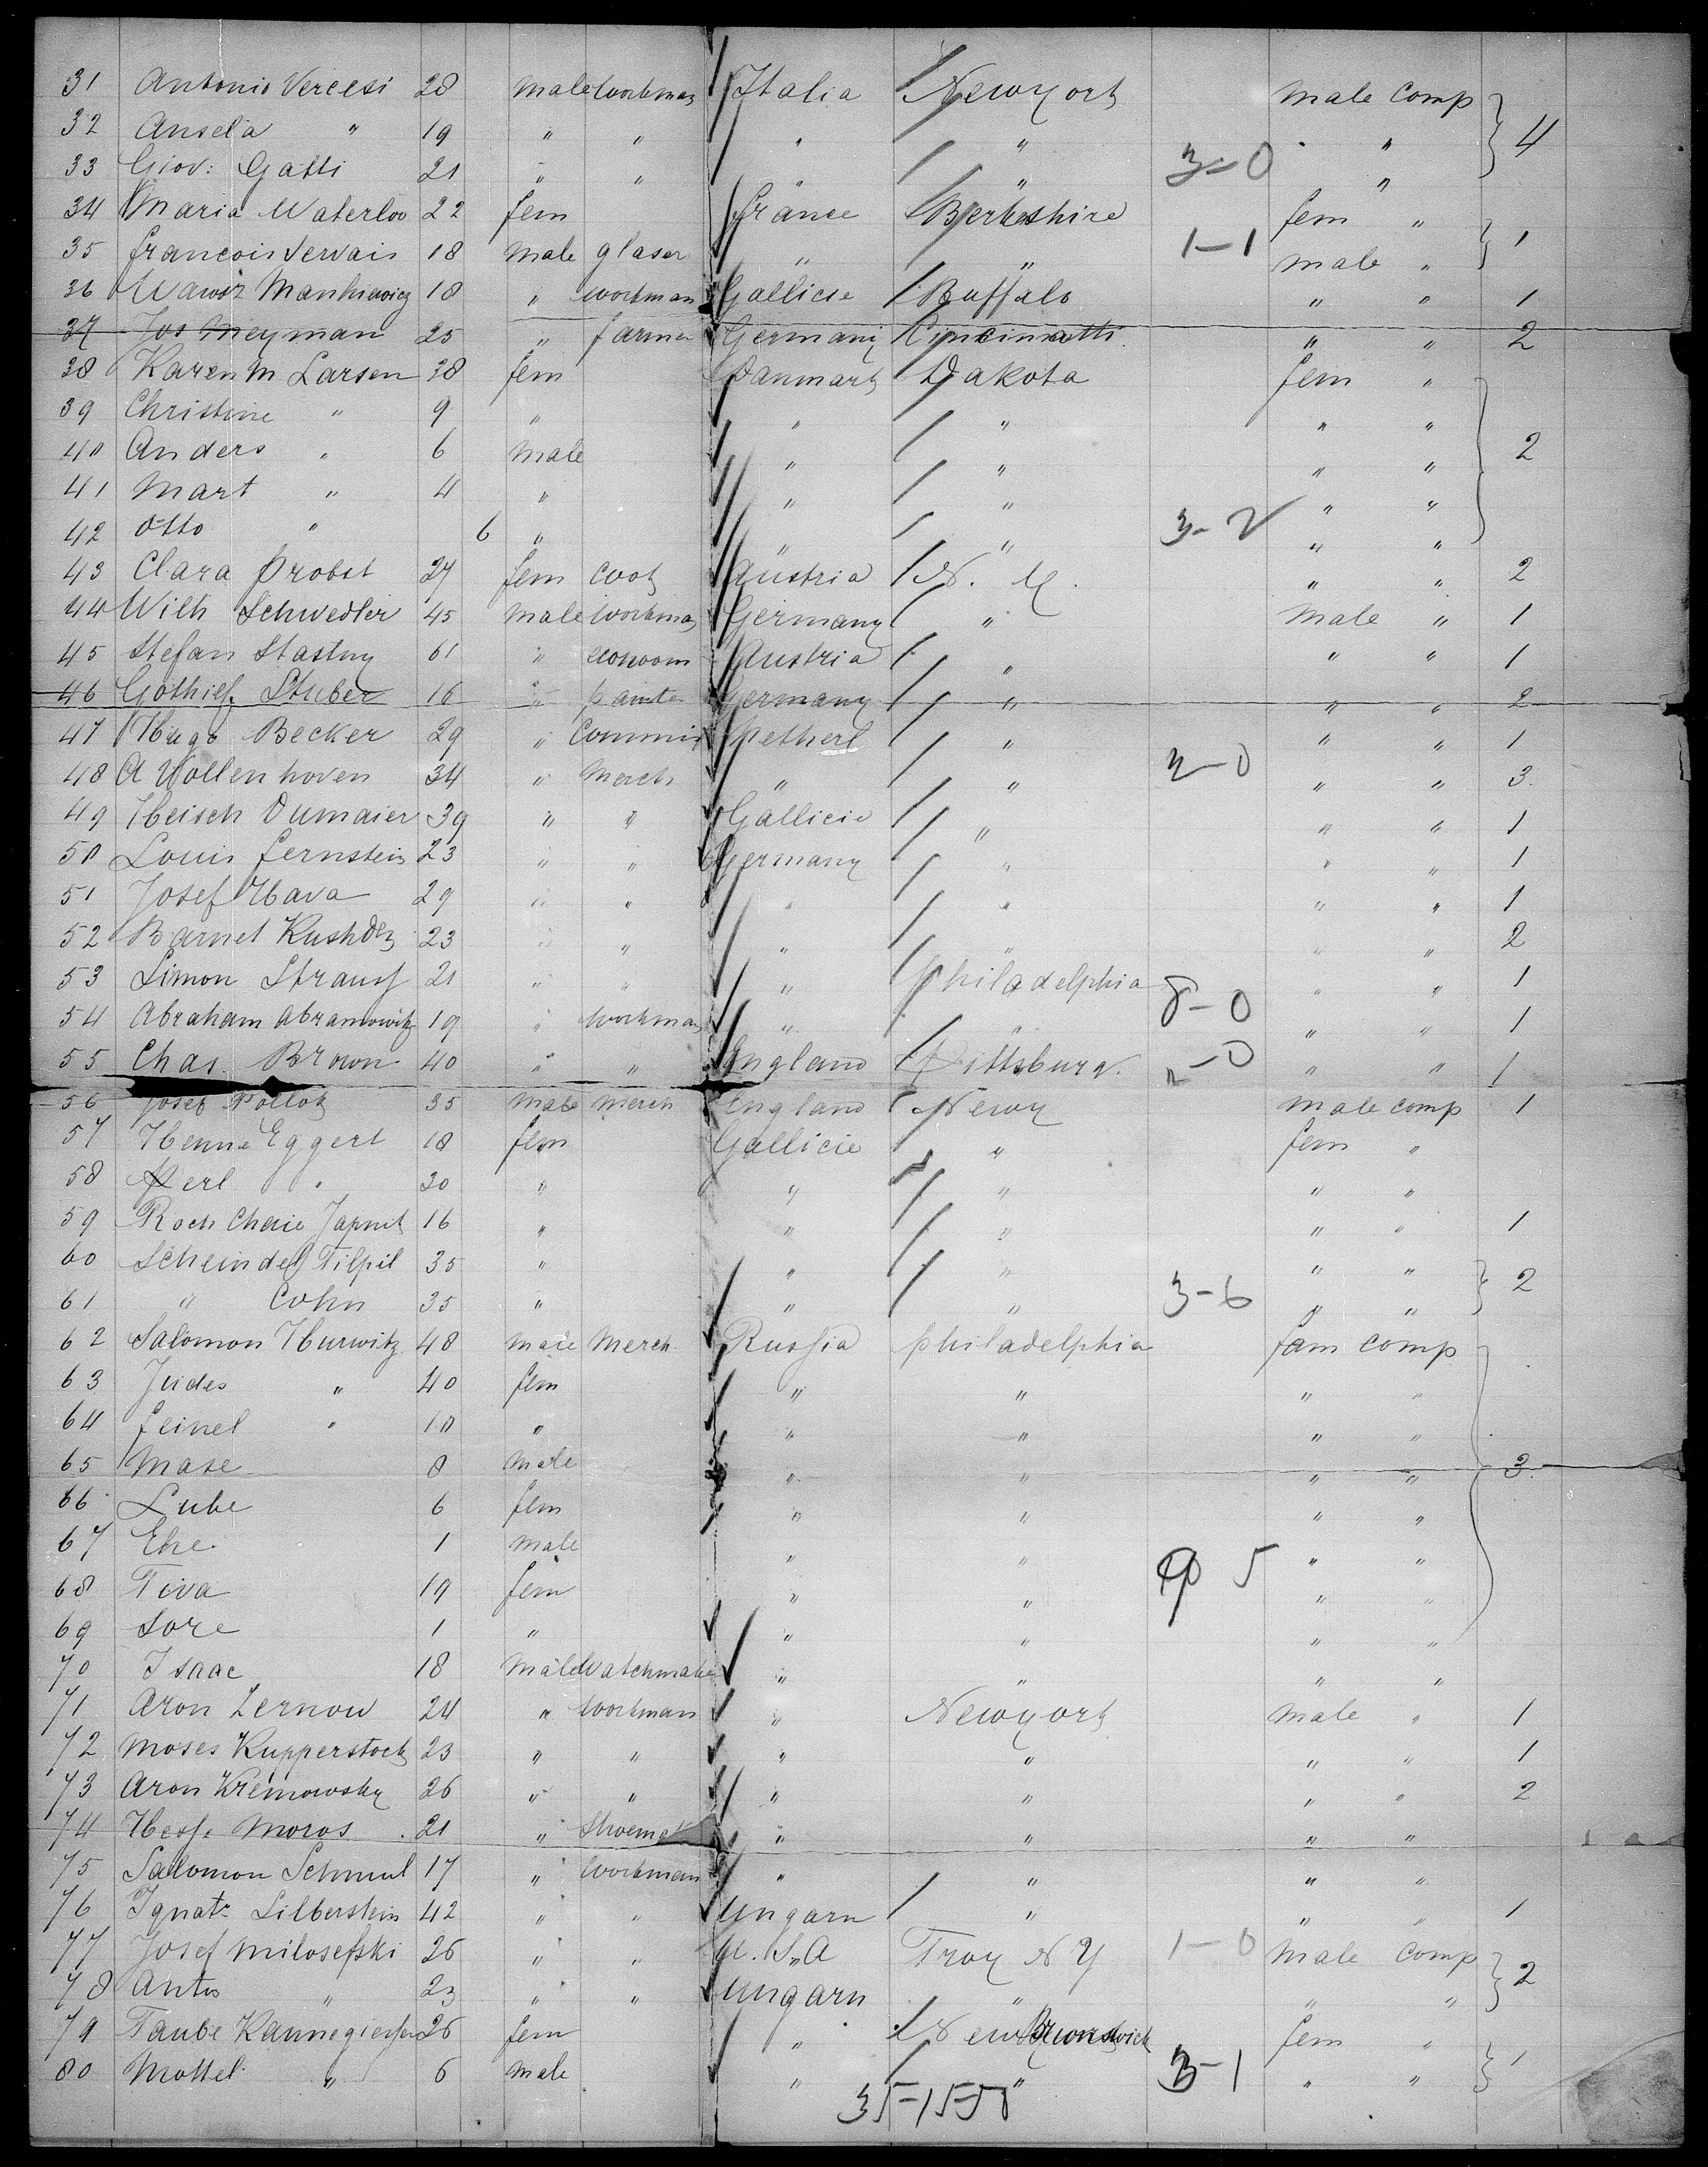 31 Antonio Vercesi 28 male workman Italia Newyork male comp
32 Ansela " 19 " " " " " " 4
33 Giov: Gatti 21 " " " " 3-0 "
34 Maria Waterloo 22 fem france Berkshire fem "
35 francois Servais 18 male glaser " " 1-1 male " 1
36 Mankiewicz 18 " workman Gallicie Buffalo " " 1
37 Jos Meyman 25 " farmer Germany Cincinnatti " " 2
38 Karen M Larsen 38 fem Danmark Dakota fem "
39 Christine " 9 " " " " "
40 Anders " 6 male " " " " 2
41 Mart " 4 " " " " "
42 Otto " 6 " " " 3-2 " "
43 Clara Probst 27 fem cook Austria N. Y. " " 2
44 Wilh Schwedler 45 male workman Germany " male " 1
45 Stefan Stastny 61 " Austria " " " 1
46 Gothief Stuber 16 " painter Germany " " " 2
47 Hugo Becker 29 " Commis Netherl " " " 1
48 A Wollenhoven 34 " Merch " " 2-0 " " 3.
49 Heisch Dumaier 39 " " Gallicie " " " 1
50 Louis fernstein 23 " " Germany " " " 1
51 Josef Hava 29 " " " " " " 1
52 Barnet 23 " " " " " " 2
53 Simon Strauss 21 " " " philadelphia " " 1
54 Abraham Abramowitz 19 " workman " " 8-0 " " 1
55 Chas. Brown 40 " " England Pittsburg. -0 " " 1
56 Josef Pollok 35 male merch England Newy male comp 1
57 Henne Eggert 18 fem Gallicie " fem "
58 " 30 " " " " "
59 Roch Chaie 16 " " " " " 1
60 Scheindel Tilpil 35 " " " " " 2
61 " Cohn 35 " " " 3-6 " "
62 Salomon Hurwitz 48 male Merch. Russia philadelphia fam comp
63 Judes " 40 fem " " " "
64 feinel " 10 " " " " "
65 Mase 8 male " " " " 3.
66 Lube 6 fem " " " "
67 Ehe 1 male " " " "
68 Tiva 19 fem " " 5 " "
69 Sore 1 " " " " "
70 Isaac 18 male Watchmaker " " " "
71 Aron Zernow 24 " workman " Newyork male " 1
72 Moses Kupperstock 23 " " " " " " 1
73 Aron Kremowsky 26 " " " " " " 2
74 Moros 21 " " " " "
75 Salomon Schmul 17 " workman " " " "
76 Ignatz Silberstein 42 " " Ungarn " " " 1
77 Josef Milosefski 26 " " U. S. A Troy N Y 1-0 male comp
78 Anto " 23 " " Ungarn " " " 2
79 Taube Kannegiesser 26 fem " New Brunswick fem " 1
80 Mottel " 6 male " " 3-1 " "
35-15-58